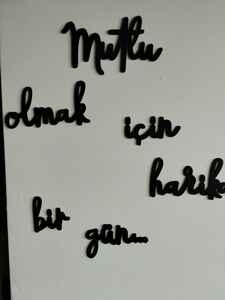 Mutlu
olmak
için
harika
bir
gün...